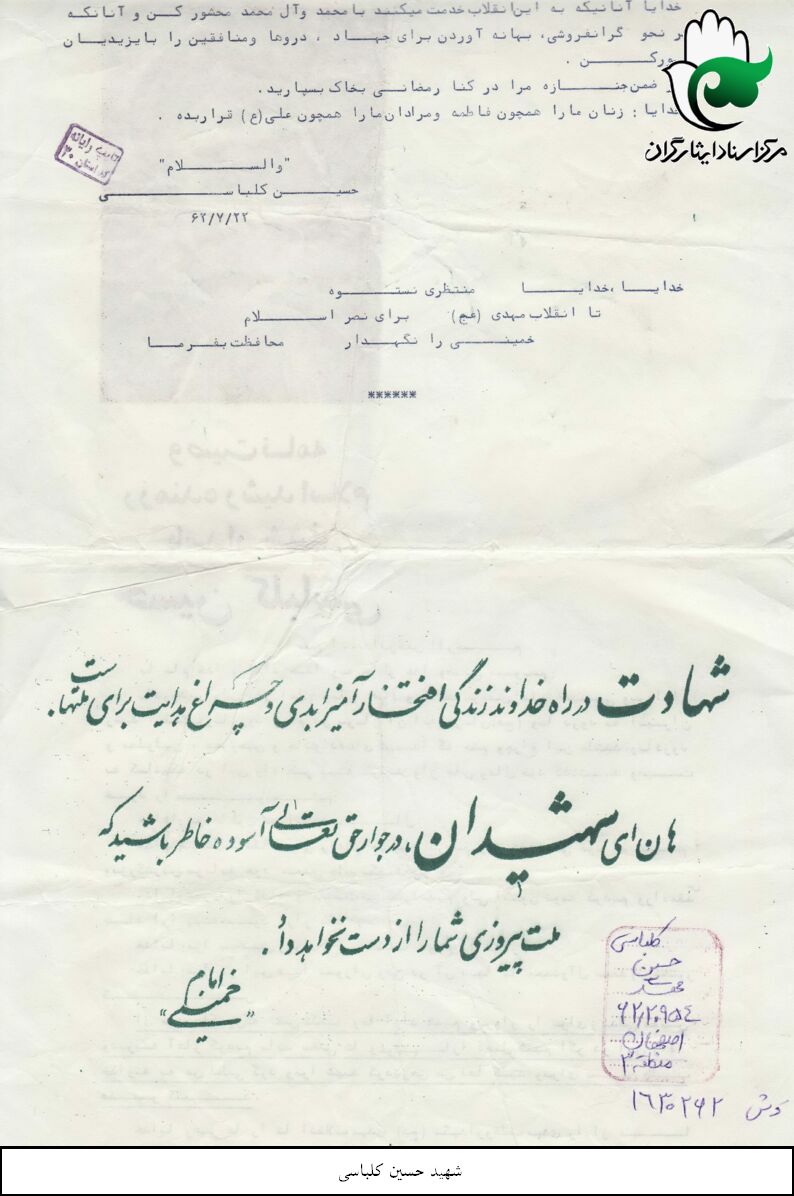 خدایا آنانیکه به این انقلاب خدمت میکنند با محمد وآل محمد محشور کن و آنانکه
نحو گرانفروشی، بهانه آوردن برای جهاد ، دروها ومنافقین را بایزیدیان
ضمن جنازه مرا در کنا رمضانی بخاک بسپارید.
خدایا : زنان ما را همچون فاطمه ومردان ما را همچون علی(ع) قرار بده .
مرکز اسناد ایثارگران
تایپ رایانه
کد استان ۳۰
"والسلام"
حسین کلباسی
۶۲/۷/۲۲
خدایا ،خدایا منتظری نستوه
تا انقلاب مهدی (عج) برای نصر اسلام
خمینی را نگهدار محافظت بفرما
******
شهادت در راه خداوند زندگی افتخار آمیز ابدی و چراغ هدایت برای ملتهاست.
هان ای شهیدان، در جوار حق تعالی آسوده خاطر باشید که
ملت پیروزی شما را از دست نخواهد داد.
امام
"خمینی"
کلباسی
حسین
اصفهان
منطقه ۳
۱۶۳۰۲۶۲
شهید حسین کلباسی